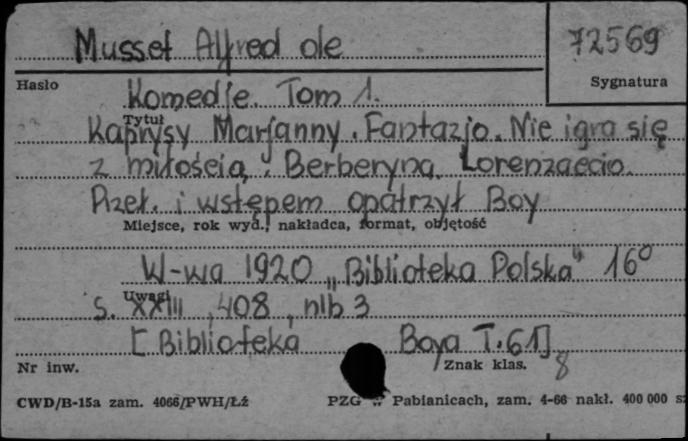 Musset Alfred de
72569
Hasło
Sygnatura
Komedje. Tom 1.
Tytuł
Kaprysy Marjanny. Fantazjo. Nie igra się
z miłością. Berberyna. Lorenzaccio.
Przeł. i wstępem opatrzył Boy
Miejsce, rok wyd., nakładca, format, objętość
W-wa 1920 „Biblioteka Polska" 16°
Uwagi
s. XXIII, 408, nlb 3
[Biblioteka Boya T. 61]
8
Nr inw.
Znak klas.
CWD/B-15a zam. 4066/PWH/Łż
PZG w Pabianicach, zam. 4-66 nakł. 400 000